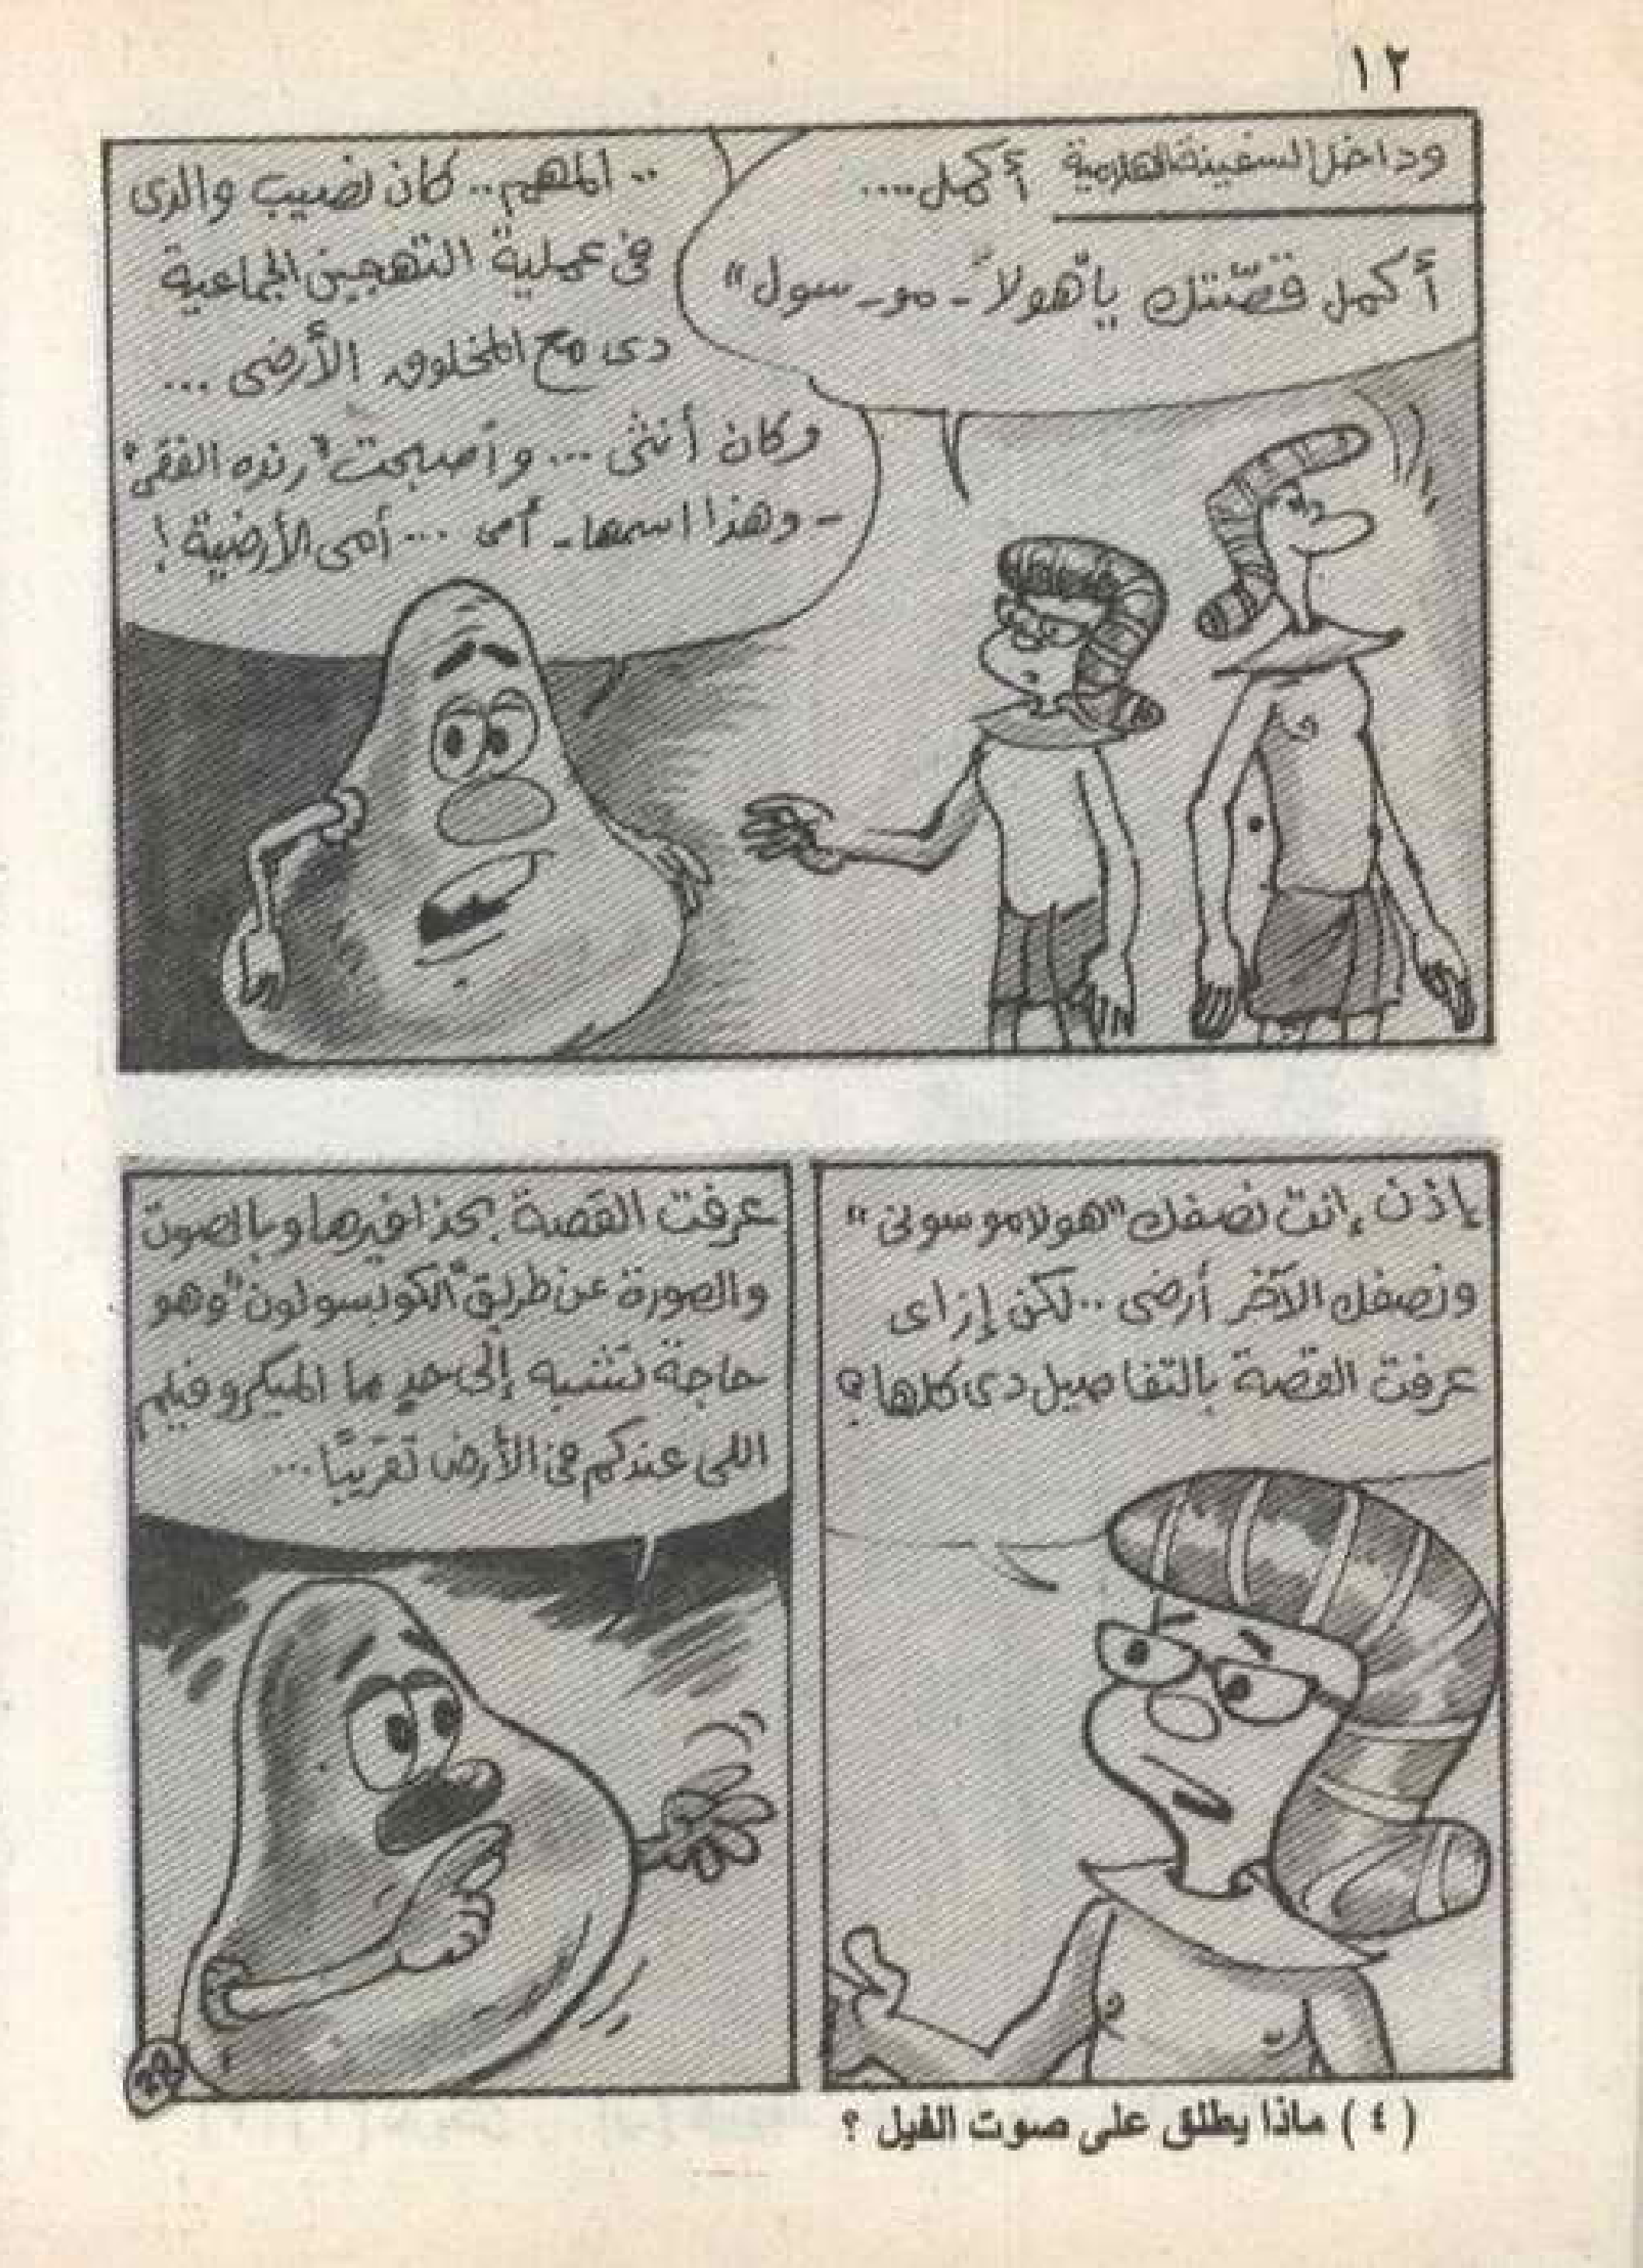 ١٢
وداخل السفينة الهلامية
أكمل....
أكمل قصّتك يا "هولا - مو - سول"
.. المهم.. كان نصيب والدى
فى عملية التهجين الجماعية
دى مع المخلوق الأرضى ...
وكان أنثى ... وأصبحت "رنده الفقى"
- وهذا اسمها - أمى ... أمى الأرضية !
إذن إنت نصفك "هولاموسولى"
ونصفك الآخر أرضى .. لكن إزاى
عرفت القصة بالتفاصيل دى كلها ؟
عرفت القصة بحذافيرها وبالصوت
والصورة عن طريق "الكوبسولون" وهو
حاجة تشبه إلى حدٍ ما الميكروفيلم
اللى عندكم فى الأرض تقريبًا ...
( ٤ ) ماذا يطلق على صوت الفيل ؟